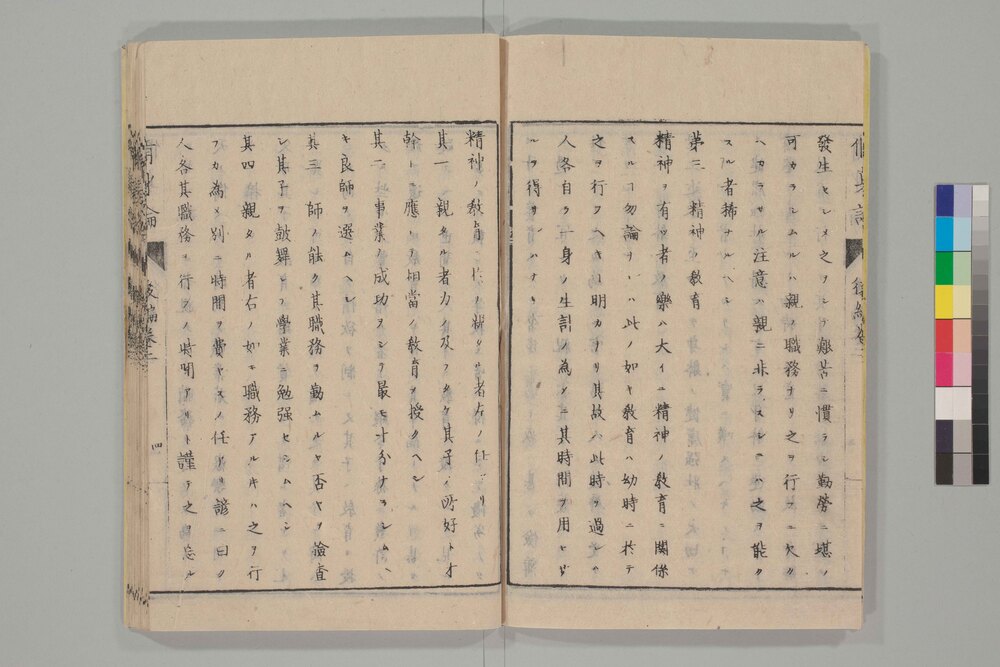 發生セシメ之ヲシテ艱苦ニ慣ラシ勤勞ニ堪ノ
可カラシムルハ親ノ職務ナリ之ヲ行フニ欠ク
ヘカラサル注意ハ親ニ非ラスシテハ之ヲ能ク
スル者稀ナルヘシ
第三 精神ノ敎育
精神ヲ有ツ者ノ樂ハ大イニ精神ノ敎育ニ關係
スルヿ勿論ナリ此ノ如キ敎育ハ幼時ニ於テ
之ヲ行フヘキハ明カナリ其故ハ此時ヲ過レハ
人各自ラ一身ノ生計ノ為メニ其時間ヲ用ヰサ
ルヲ得サレハナリ
精神ノ敎育ニ付キ親タル者左ノ任アリ
其一 親タル者力ノ及フタケ其子ノ所好ト才
幹トニ應シ相當ノ敎育ヲ授クヘシ
其二 此事業ノ成功ヲシテ最モ十分ナラシムヘ
キ良師ヲ選ムヘシ
其三 師ノ能ク其職務ヲ勤ムルヤ否ヤヲ檢査
シ其子ヲ鼓舞シテ學業ニ勉强セシムヘシ
其四 親タル者右ノ如キ職務アルキハ之ヲ行
フカ為メ別ニ時間ヲ費ヤスノ任アリ諺ニ曰ク
人各其職務ヲ行フノ時間アリト謹テ之ヲ忘ル
後編卷二
四